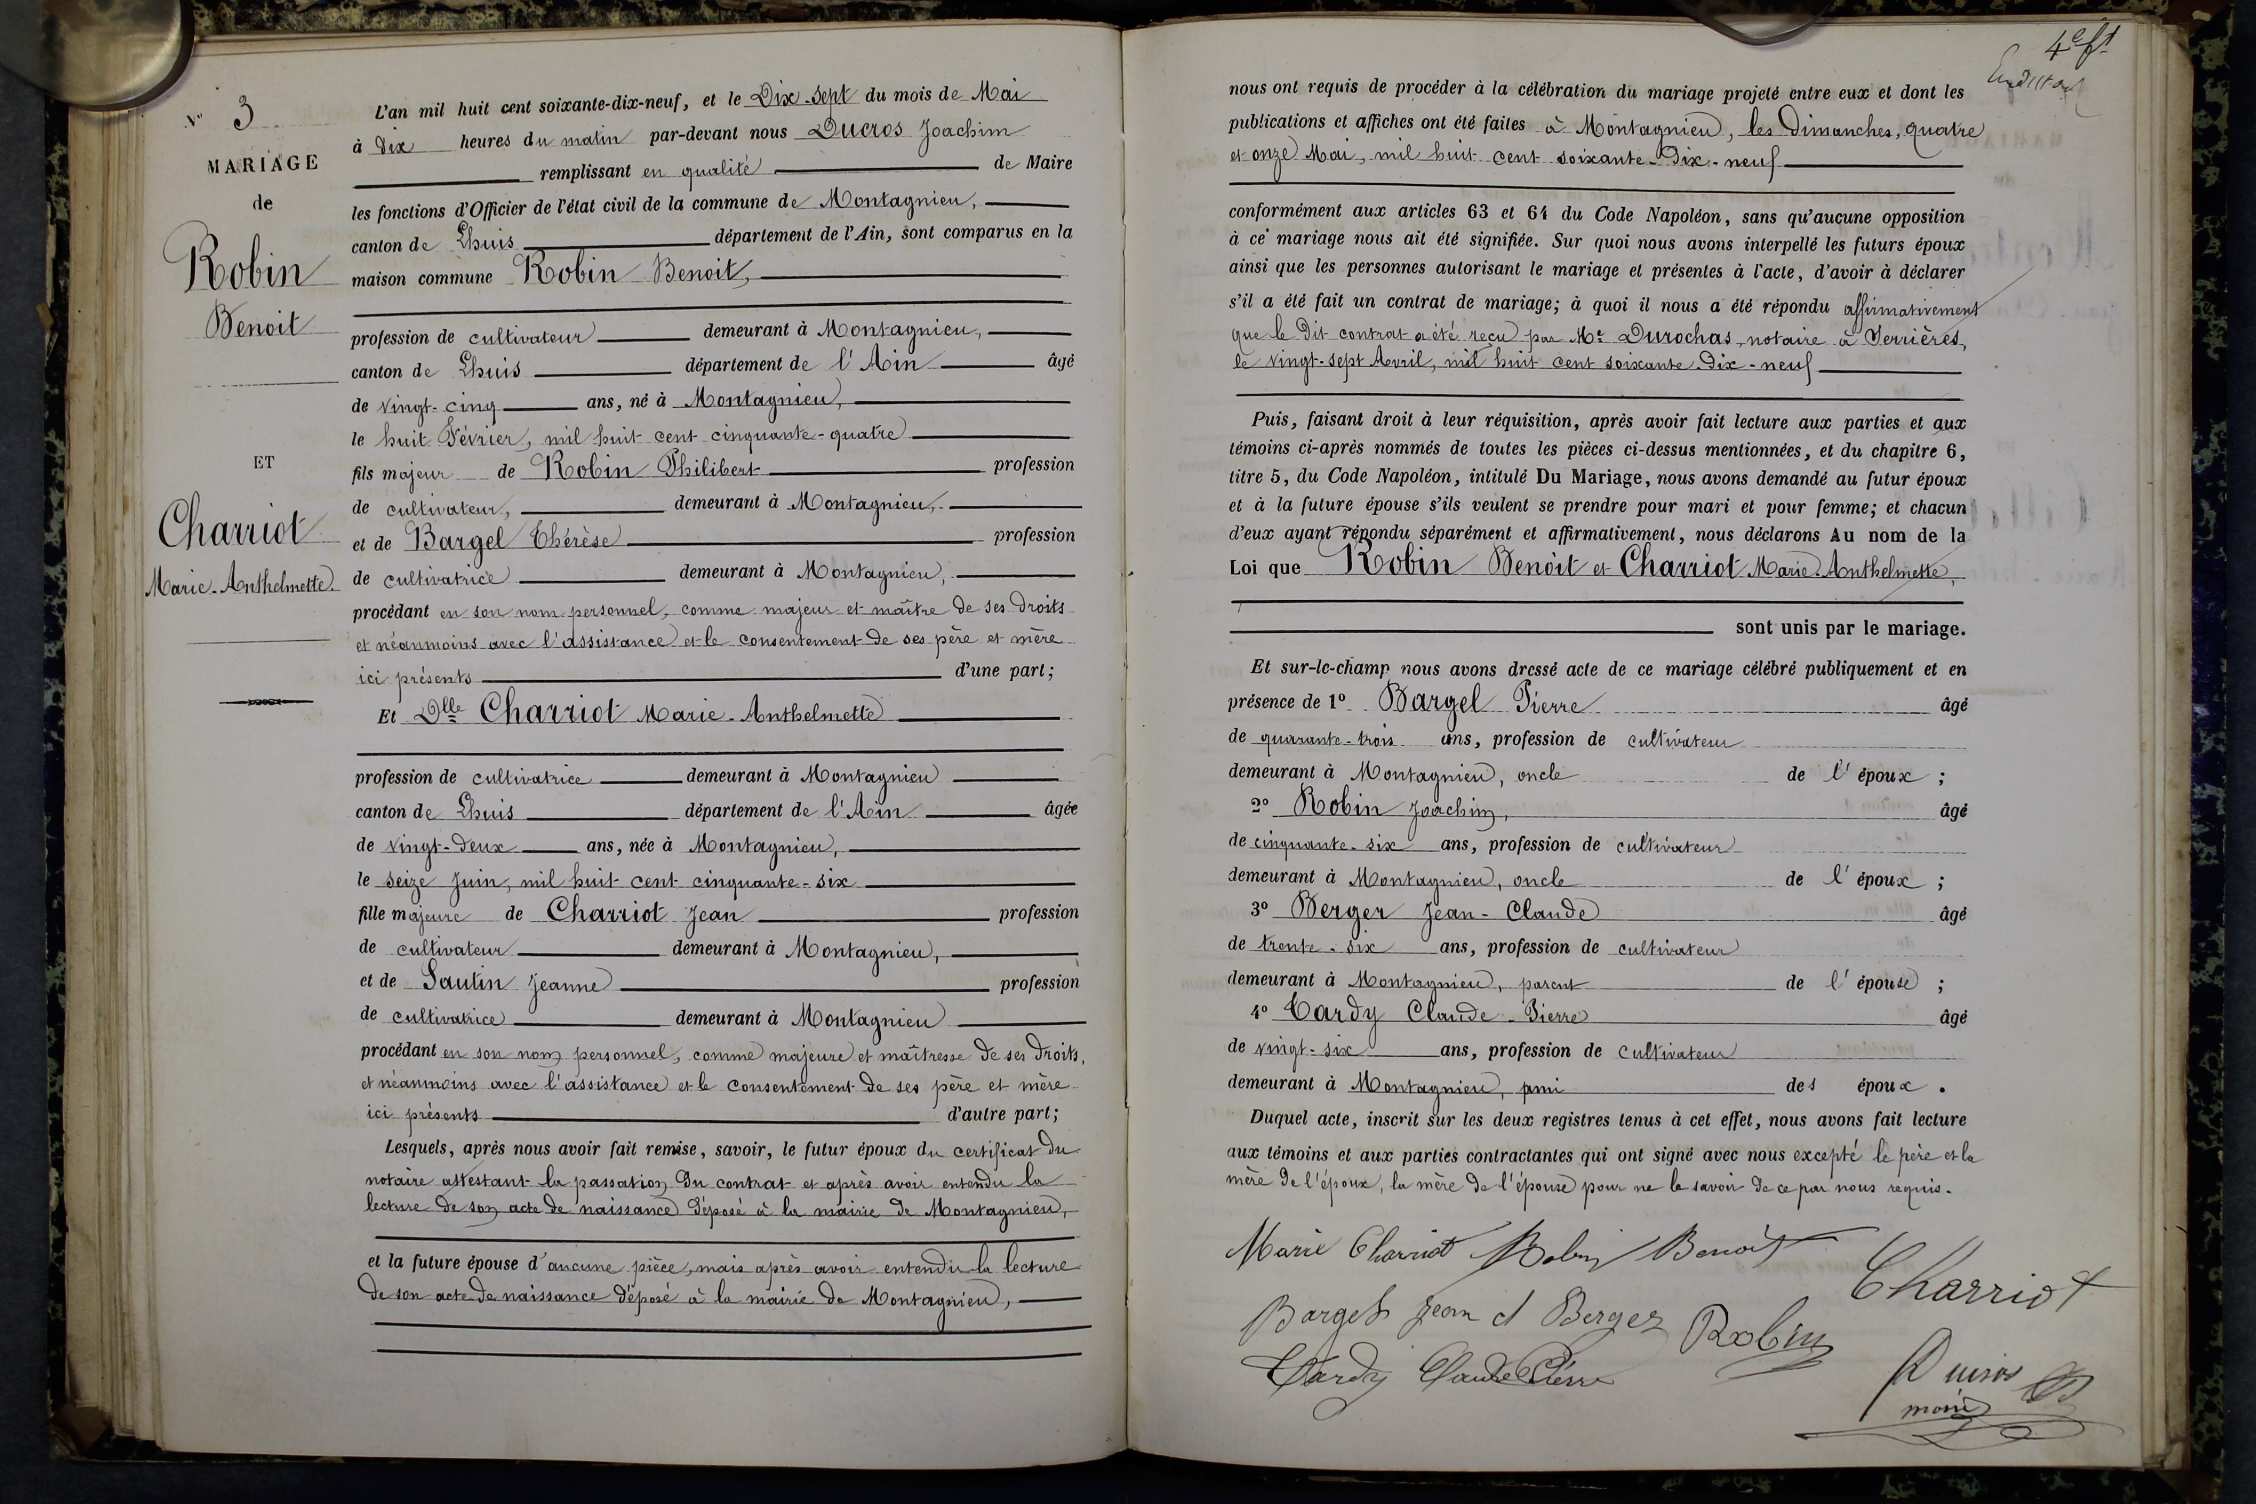 N° 3
MARIAGE
de
Robin
Benoit
ET
Charriot
Marie-Anthelmette.
L'an mil huit cent soixante-dix-neuf, et le Dix-sept du mois de Mai
à Dix heures du matin par-devant nous Ducros Joachim
remplissant en qualité de Maire
les fonctions d'Officier de l'état civil de la commune de Montagnieu,
canton de Lhuis département de l'Ain, sont comparus en la
maison commune Robin Benoit,
profession de cultivateur demeurant à Montagnieu,
canton de Lhuis département de l'Ain âgé
de vingt-cinq ans, né à Montagnieu,
le huit Février, mil huit cent cinquante-quatre
fils majeur de Robin Philibert profession
de cultivateur, demeurant à Montagnieu,
et de Bargel Thérèse profession
de cultivatrice demeurant à Montagnieu,
procédant en son nom personnel, comme majeur et maître de ses droits
et néanmoins avec l'assistance et le consentement de ses père et mère
ici présents d'une part;
Et Dlle Charriot Marie-Anthelmette
profession de cultivatrice demeurant à Montagnieu
canton de Lhuis département de l'Ain âgée
de vingt-deux ans, née à Montagnieu,
le seize Juin, mil huit cent cinquante-six
fille majeure de Charriot Jean profession
de cultivateur demeurant à Montagnieu,
et de Sautin Jeanne profession
de cultivatrice demeurant à Montagnieu
procédant en son nom personnel, comme majeure et maîtresse de ses droits,
et néanmoins avec l'assistance et le consentement de ses père et mère
ici présents d'autre part;
Lesquels, après nous avoir fait remise, savoir, le futur époux du certificat du
notaire attestant la passation du contrat et après avoir entendu la
lecture de son acte de naissance déposé à la mairie de Montagnieu,
et la future épouse d'aucune pièce, mais après avoir entendu la lecture
de son acte de naissance déposé à la mairie de Montagnieu,
4e ft
nous ont requis de procéder à la célébration du mariage projeté entre eux et dont les
publications et affiches ont été faites à Montagnieu, les Dimanches, quatre
et onze Mai, mil huit cent soixante-Dix-neuf
conformément aux articles 63 et 64 du Code Napoléon, sans qu'aucune opposition
à ce mariage nous ait été signifiée. Sur quoi nous avons interpellé les futurs époux
ainsi que les personnes autorisant le mariage et présentes à l'acte, d'avoir à déclarer
s'il a été fait un contrat de mariage; à quoi il nous a été répondu affirmativement
que le dit contrat a été reçu par Me Durochas, notaire à Serrières,
le vingt-sept Avril, mil huit cent soixante-Dix-neuf
Puis, faisant droit à leur réquisition, après avoir fait lecture aux parties et aux
témoins ci-après nommés de toutes les pièces ci-dessus mentionnées, et du chapitre 6,
titre 5, du Code Napoléon, intitulé Du Mariage, nous avons demandé au futur époux
et à la future épouse s'ils veulent se prendre pour mari et pour femme; et chacun
d'eux ayant répondu séparément et affirmativement, nous déclarons Au nom de la
Loi que Robin Benoit et Charriot Marie-Anthelmette,
sont unis par le mariage.
Et sur-le-champ nous avons dressé acte de ce mariage célébré publiquement et en
présence de 1° Bargel Pierre âgé
de quarante-trois ans, profession de cultivateur
demeurant à Montagnieu, oncle de l'époux ;
2° Robin Joachim, âgé
de cinquante-six ans, profession de cultivateur
demeurant à Montagnieu, oncle de l'époux ;
3° Berger Jean-Claude âgé
de trente-six ans, profession de cultivateur
demeurant à Montagnieu, parent de l'épouse ;
4° Tardy Claude-Pierre âgé
de vingt-six ans, profession de cultivateur
demeurant à Montagnieu, ami des époux.
Duquel acte, inscrit sur les deux registres tenus à cet effet, nous avons fait lecture
aux témoins et aux parties contractantes qui ont signé avec nous excepté le père et la
mère de l'époux, la mère de l'épouse pour ne le savoir de ce par nous requis.
Marie Charriot Robin Benoit
Charriot
Bargel Jean cl Berger Robin
Tardy Claude Pierre
Ducros
maire